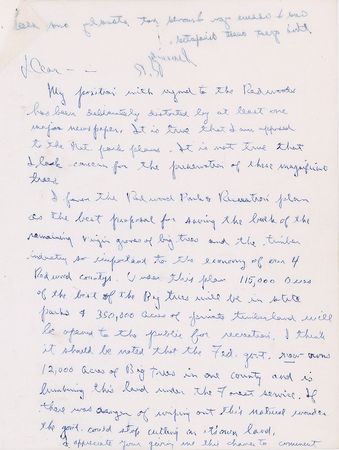 Dear - -
My position with regard to the Redwoods
has been deliberately distorted by at least one
major newspaper. It is true that I am opposed
to the Nat. park plans. It is not true that
I lack concern for the preservation of these magnificent
trees.
I favor the Redwood Park & Recreation plan
as the best proposal for saving the bulk of the
remaining virgin groves of big trees and the timber
industry so important to the economy of our 4
Redwood countys. Under this plan 115,000 acres
of the best of the Big trees will be in state
parks & 350,000 acres of private timberland will
be opened to the public for recreation. I think
it should be noted that the Fed. govt. now owns
12,000 acres of Big trees in one county and is
lumbering this land under the Forest service. If
there was danger of wiping out this natural wonder
the govt. could stop cutting on its own land.
I appreciate your giving me this chance to comment